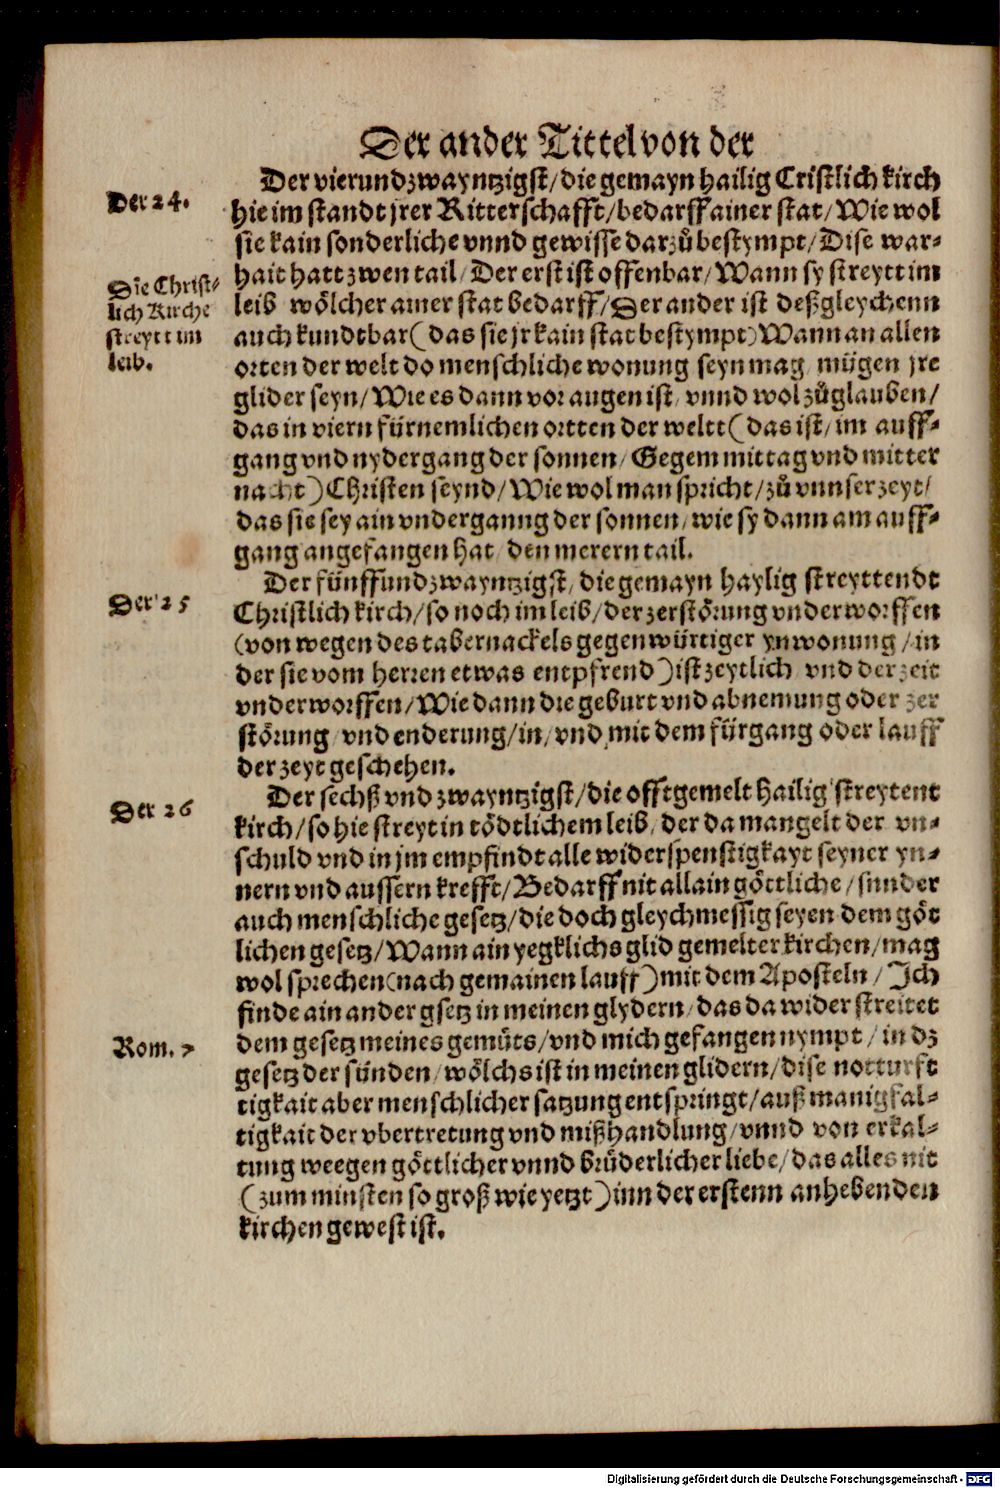 Der ander Tittel von der
Der 24.
Der vierundzwayntzigst/die gemayn hailig Cristlich kirch
hie im standt jrer Ritterschafft/bedarff ainer stat/Wie wol
sie kain sonderliche vnnd gewisse darzů bestympt/Dise war-
Die Christ-
lich Kirche
streytt im
leib.
hait hatt zwen tail/Der erst ist offenbar/Wann sy streytt im
leib wölcher ainer stat bedarff/Der ander ist deßgleychenn
auch kundtbar(das sie jr kain stat bestympt)Wann an allen
orten der welt do menschliche wonung seyn mag/mügen jre
glider seyn/Wie es dann vor augen ist/vnnd wol zůglauben/
das in viern fürnemlichen ortten der weltt(das ist/im auff-
gang vnd nydergang der sonnen/Gegem mittag vnd mitter
nacht)Christen seynd/Wie wol man spricht/zů vnnser zeyt/
das sie sey ain vnderganng der sonnen/wie sy dann am auff-
gang angefangen hat/den merern tail.
Der 25
Der fünffundzwayntzigst/die gemayn haylig streyttendt
Christlich kirch/so noch im leib/der zerstörung vnderworffen
(von wegen des tabernackels gegenwürtiger ynwonung/in
der sie vom herren etwas entpfrend)ist zeytlich vnd der zeit
vnderworffen/Wie dann die geburt vnd abnemung oder zer
störung/vnd enderung/in/vnd mit dem fürgang oder lauff
der zeyt geschehen.
Der 26
Der sechß vnd zwayntzigst/die offtgemelt hailig streytent
kirch/so hie streyt in tödtlichem leib/der da mangelt der vn-
schuld vnd in jm empfindt alle widerspenstigkayt seyner yn-
nern vnd aussern krefft/Bedarff nit allain göttliche/sunder
auch menschliche gesetz/die doch gleychmessig seyen dem göt
lichen gesetz/Wann ain yegklichs glid gemelter kirchen/mag
wol sprechen(nach gemainen lauff)mit dem Aposteln/Ich
finde ain ander gsetz in meinen glydern/das da wider streitet
Rom. 7
dem gesetz meines gemüts/vnd mich gefangen nympt/in dz
gesetz der sünden/wölchs ist in meinen glidern/dise notturft
tigkait aber menschlicher satzung entspringt/auß manigfal-
tigkait der vbertretung vnd mißhandlung/vnnd von erkal-
tung weegen göttlicher vnnd brüderlicher liebe/das alles nit
(zum minsten so groß wie yetzt)inn der erstenn anhebenden
kirchen gewest ist.
Digitalisierung gefördert durch die Deutsche Forschungsgemeinschaft - DFG